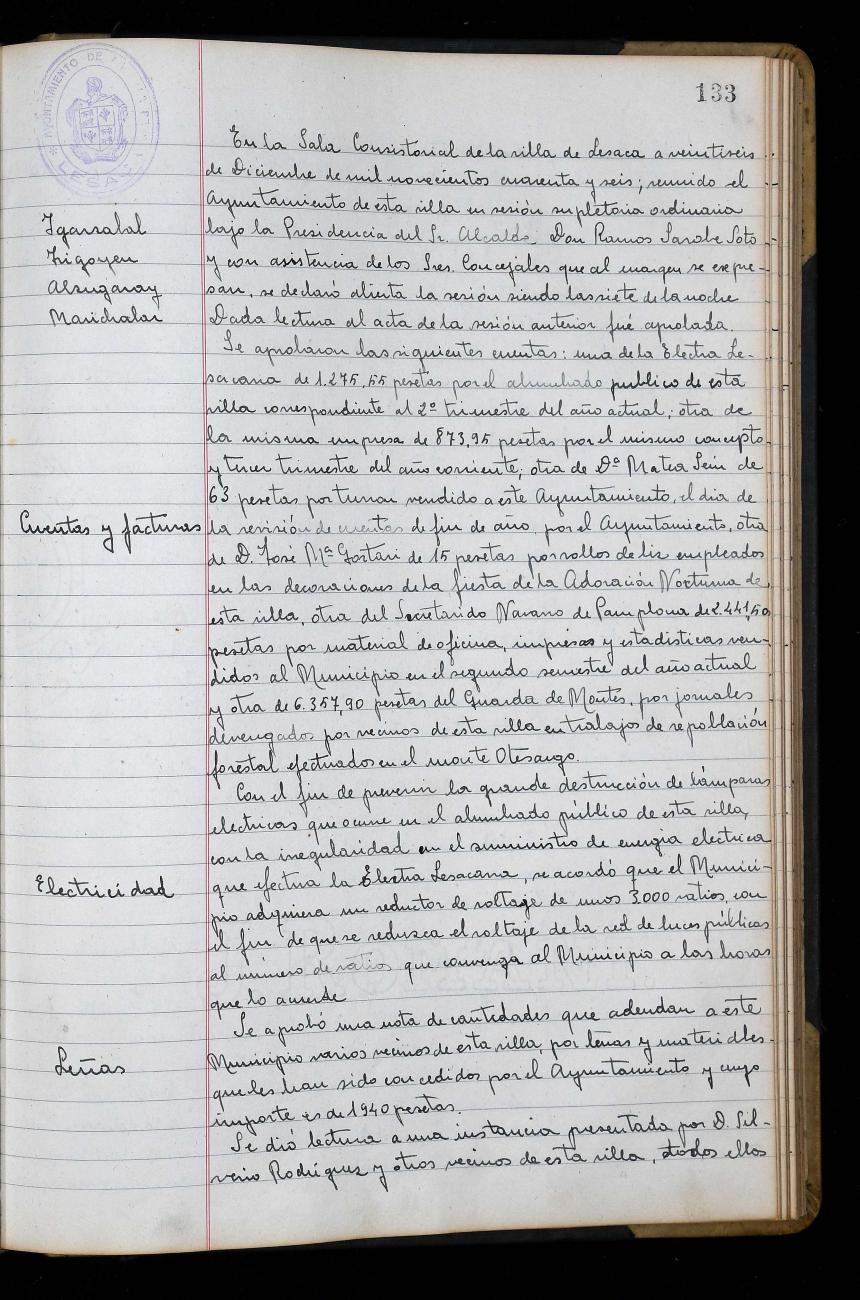 133
AYUNTAMIENTO DE
LESACA
En la Sala Consistorial de la villa de Lesaca a veintiseis
de Diciembre de mil novecientos cuarenta y seis; reunido el
Ayuntamiento de esta villa en sesión supletoria ordinaria
Igarzabal
bajo la Presidencia del Sr. Alcalde, Don Ramos Sarobe Soto
Irigoyen
y con asistencia de los Sres. Concejales que al margen se expre-
Alzugaray
san, se declaró abierta la sesión siendo las siete de la noche
Marichalar
Dada lectura al acta de la sesión anterior fué aprobada.
Se aprobaron las siguientes cuentas: una de la Electra Le-
sacana de 1.275,55 pesetas por el alumbrado publico de esta
villa correspondiente al 2º trimestre del año actual; otra de
la misma empresa de 873,95 pesetas por el mismo concepto
y tercer trimestre del año corriente; otra de Dª Matea Sein de
63 pesetas por turron vendido a este Ayuntamiento, el dia de
Cuentas y facturas
la revisión de cuentas de fin de año, por el Ayuntamiento, otra
de D. José Mª Gortari de 15 pesetas por rollos de liz empleados
en las decoraciones de la fiesta de la Adoración Nocturna de
esta villa, otra del Secretariado Navarro de Pamplona de 2.441,50
pesetas por material de oficina, impresos y estadisticas ven-
didos al Municipio en el segundo semestre del año actual
y otra de 6.357,90 pesetas del Guarda de Montes, por jornales
devengados por vecinos de esta villa en trabajos de repoblación
forestal efectuados en el monte Otsango.
Con el fin de prevenir la grande destrucción de lámparas
electricas que ocurre en el alumbrado público de esta villa,
con la irregularidad en el suministro de energia electrica
Electricidad
que efectua la Electra Lesacana, se acordó que el Munici-
pio adquiera un reductor de voltage de unos 3.000 vatios, con
el fin de que se reduzca el voltaje de la red de luces públicas
al número de vatios que convenga al Municipio a las horas
que lo acuerde
Se aprobó una nota de cantidades que adeudan a este
Leñas
Municipio varios vecinos de esta villa, por leñas y materiales
que les han sido concedidos por el Ayuntamiento y cuyo
importe es de 1940 pesetas.
Se dió lectura a una instancia presentada por D. Sil-
verio Rodríguez y otros vecinos de esta villa, todos ellos